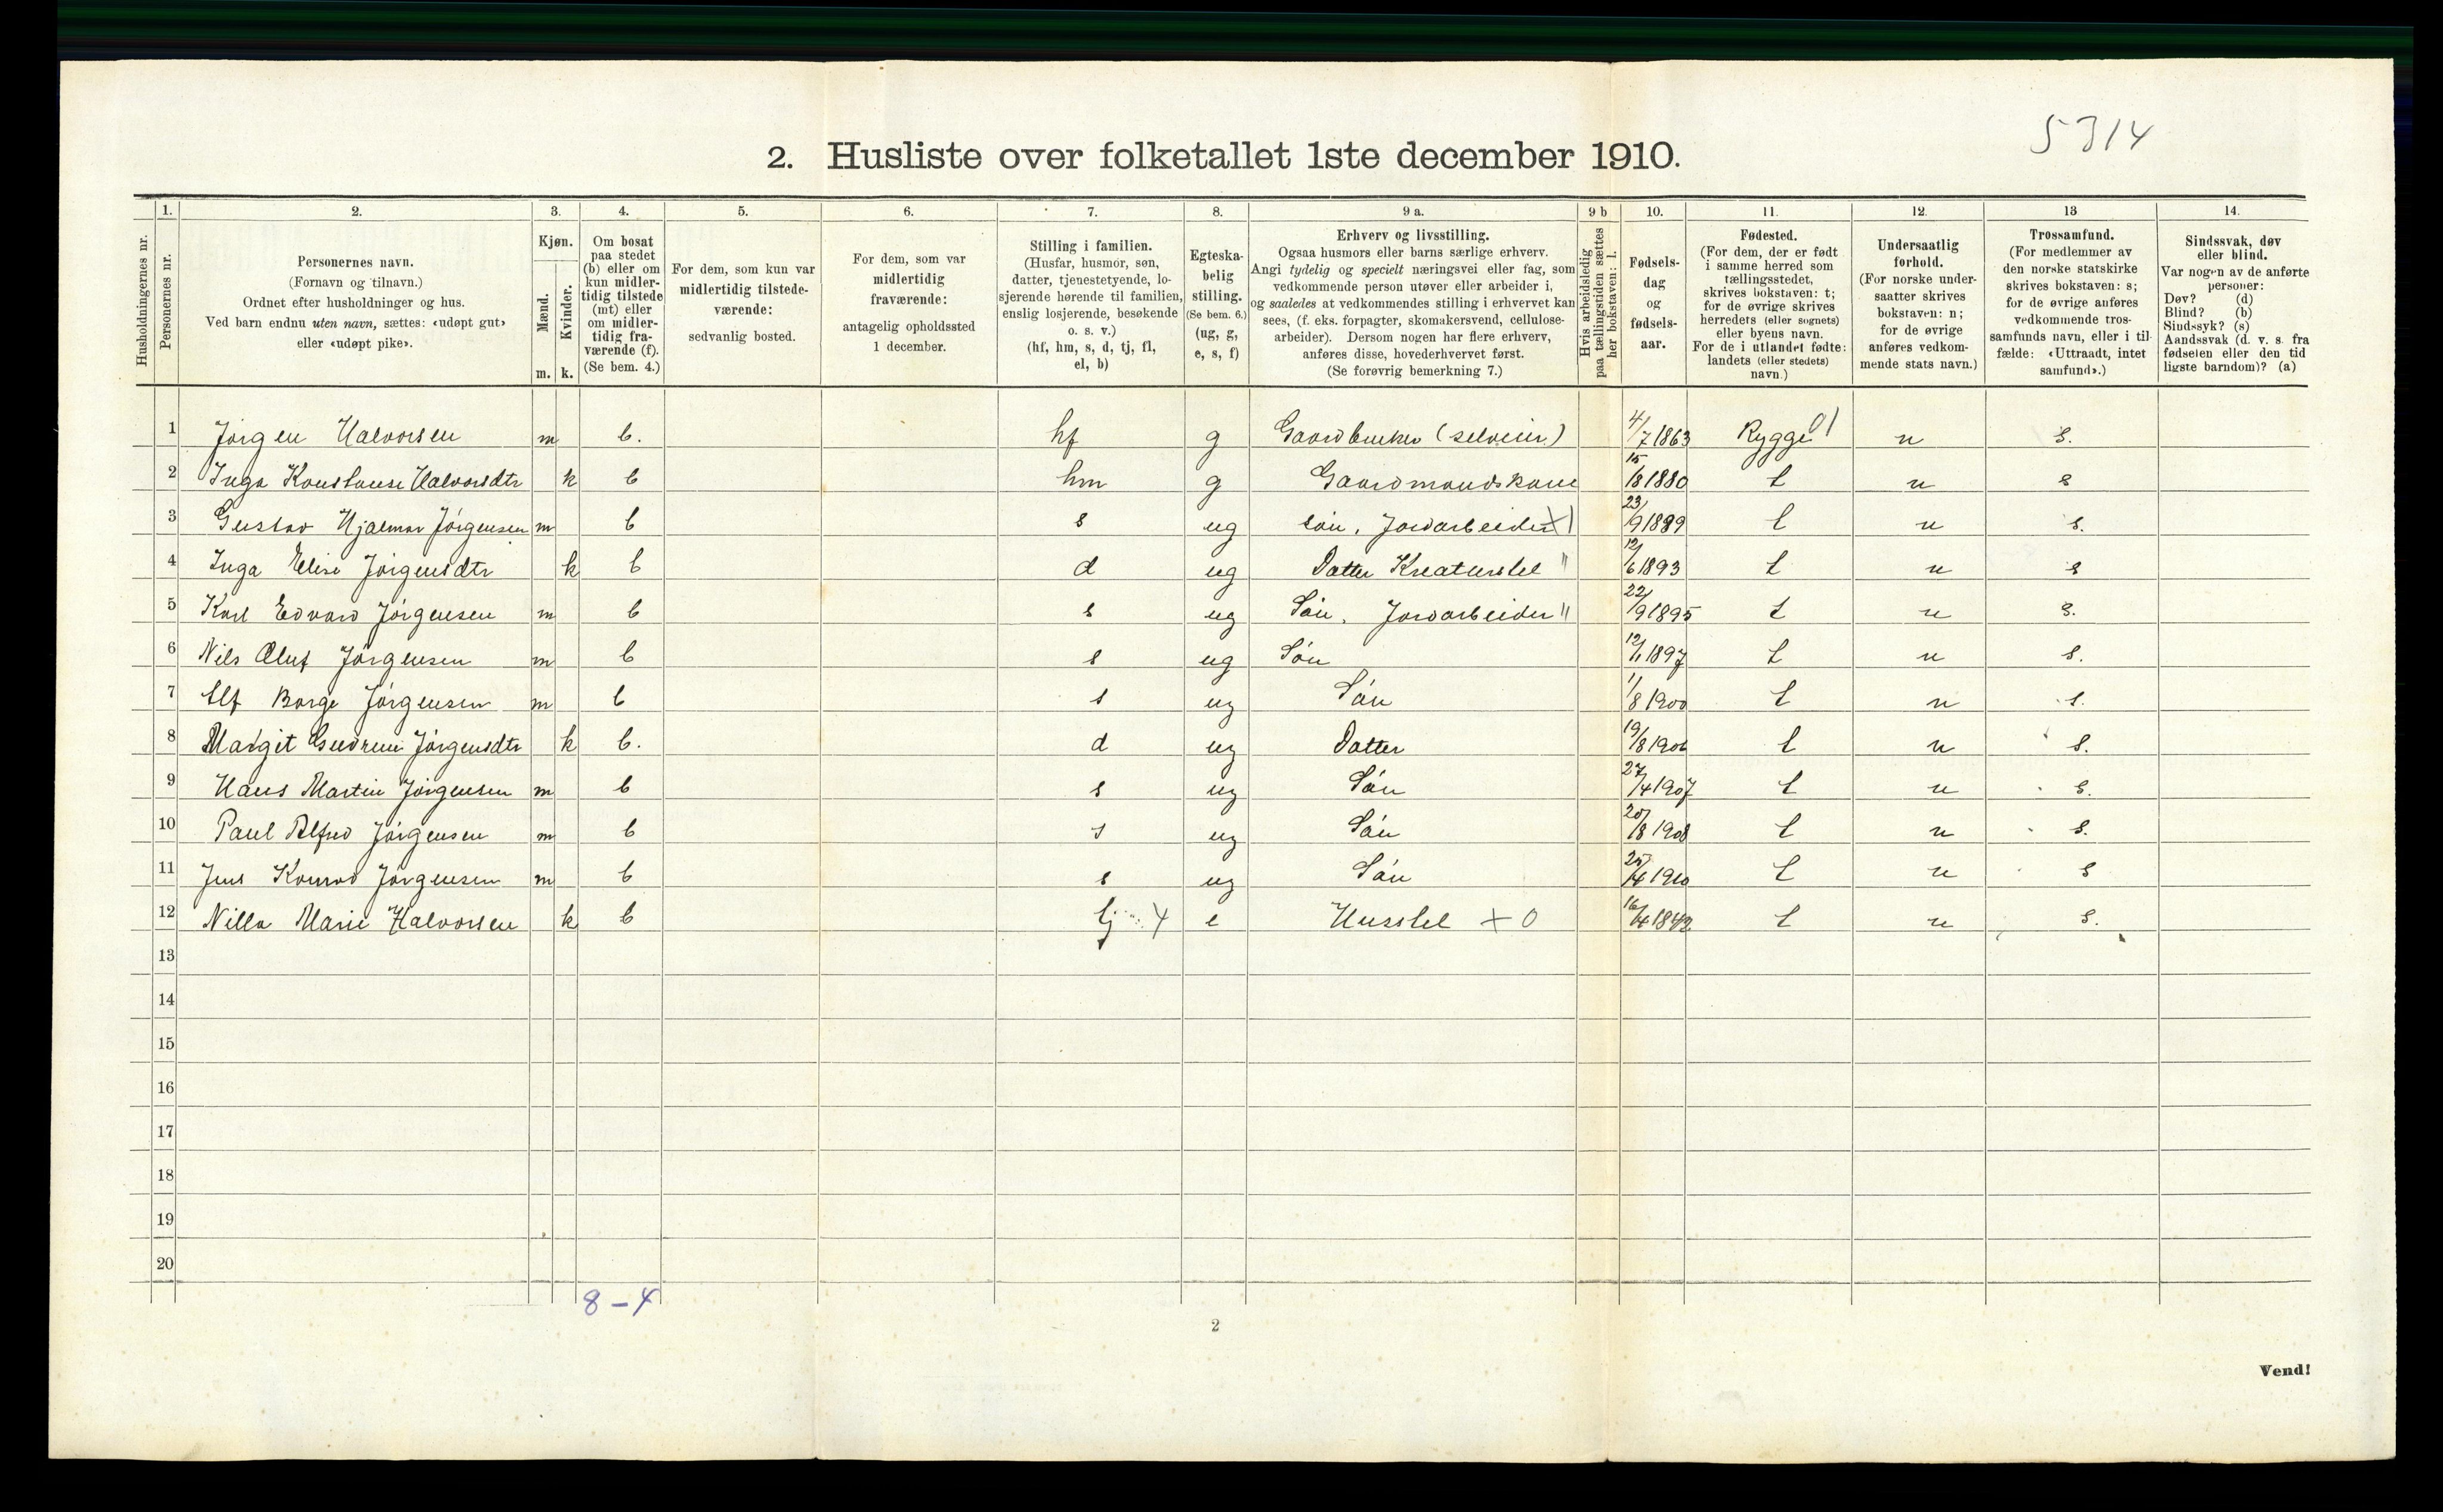 5314
2. Husliste over folketallet 1ste december 1910.
1. 2. 3. 4. 5. 6. 7. 8. 9 a. 9 b 10. 11. 12. 13 14.
Husholdningernes nr.
Personernes nr.
Personernes navn.
(Fornavn og tilnavn.)
Ordnet efter husholdninger og hus.
Ved barn endnu uten navn, sættes: «udøpt gut»
eller «udøpt pike».
Kjøn.
Mænd.
Kvinder.
m. k.
Om bosat
paa stedet
(b) eller om
kun midler-
tidig tilstede
(mt) eller
om midler-
tidig fra-
værende (f).
(Se bem. 4.)
For dem, som kun var
midlertidig tilstede-
værende:
sedvanlig bosted.
For dem, som var
midlertidig
fraværende:
antagelig opholdssted
1 december.
Stilling i familien.
(Husfar, husmor, søn,
datter, tjenestetyende, lo-
sjerende hørende til familien,
enslig losjerende, besøkende
o. s. v.)
(hf, hm, s, d, tj, fl,
el, b)
Egteska-
belig
stilling.
(Se bem. 6.)
(ug, g,
e, s, f)
Erhverv og livsstilling.
Ogsaa husmors eller barns særlige erhverv.
Angi tydelig og specielt næringsvei eller fag, som
vedkommende person utøver eller arbeider i,
og saaledes at vedkommendes stilling i erhvervet kan
sees, (f. eks. forpagter, skomakersvend, cellulose-
arbeider). Dersom nogen har flere erhverv,
anføres disse, hovederhvervet først.
(Se forøvrig bemerkning 7.)
Hvis arbeidsledig
paa tællingstiden sættes
her bokstaven: l.
Fødsels-
dag
og
fødsels-
aar.
Fødested.
(For dem, der er født
i samme herred som
tællingsstedet,
skrives bokstaven: t;
for de øvrige skrives
herredets (eller sognets)
eller byens navn.
For de i utlandet fødte:
landets (eller stedets)
navn.)
Undersaatlig
forhold.
(For norske under-
saatter skrives
bokstaven: n;
for de øvrige
anføres vedkom-
mende stats navn.)
Trossamfund.
(For medlemmer av
den norske statskirke
skrives bokstaven: s;
for de øvrige anføres
vedkommende tros-
samfunds navn, eller i til-
fælde: «Uttraadt, intet
samfund».)
Sindssvak, døv
eller blind.
Var nogen av de anførte
personer:
Døv? (d)
Blind? (b)
Sindssyk? (s)
Aandssvak (d. v. s. fra
fødselen eller den tid-
ligste barndom)? (a)
1 Jørgen Halvorsen m b. hf g Gaardbruker (selveier) 4/7 1863 Rygge 01 n s.
2 Inga Konstanse Halvorsdtr k b hm g Gaardmandskone 15/8 1880 t n s
3 Gustav Hjalmar Jørgensen m b s ug søn, Jordarbeider X1 23/9 1889 t n s.
4 Inga Elise Jørgensdtr k b d ug Datter Kreaturstel " 12/6 1893 t n s
5 Karl Edvard Jørgensen m b s ug Søn, Jordarbeider " 22/9 1895 t n s.
6 Nils Oluf Jørgensen m b s ug Søn 12/1 1897 t n s.
7 Alf Borge Jørgensen m b s ug Søn 1/8 1900 t n s.
8 Margit Gudrun Jørgensdtr k b. d ug Datter 19/8 1906 t n s.
9 Hans Martin Jørgensen m b s ug Søn 27/4 1907 t n s.
10 Paul Alfred Jørgensen m b s ug Søn 20/8 1908 t n s.
11 Jens Konrad Jørgensen m b s ug Søn 25/4 1910 t n s
12 Nilla Marie Halvorsen k b tj 4 e Husstel + 0 16/4 1842 t n s.
13
14
15
16
17
18
19
20
8 - 4
2
Vend!